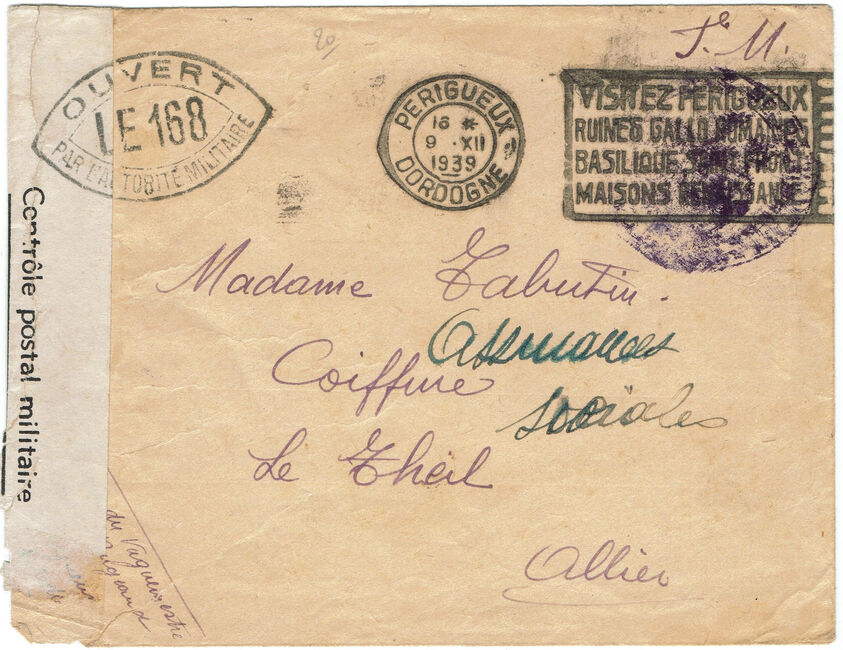 20/
F. M.
OUVERT
LE 168
PAR L'AUTORITÉ MILITAIRE
PERIGUEUX
16 *
9 · XII
1939
DORDOGNE
VISITEZ PERIGUEUX
RUINES GALLO ROMAINES
BASILIQUE SAINT FRONT
MAISONS RENAISSANCE
Contrôle postal militaire
Madame Tabutin.
Coiffure
Assurances
sociales
Le Theil
Allier
du Vaguemestre